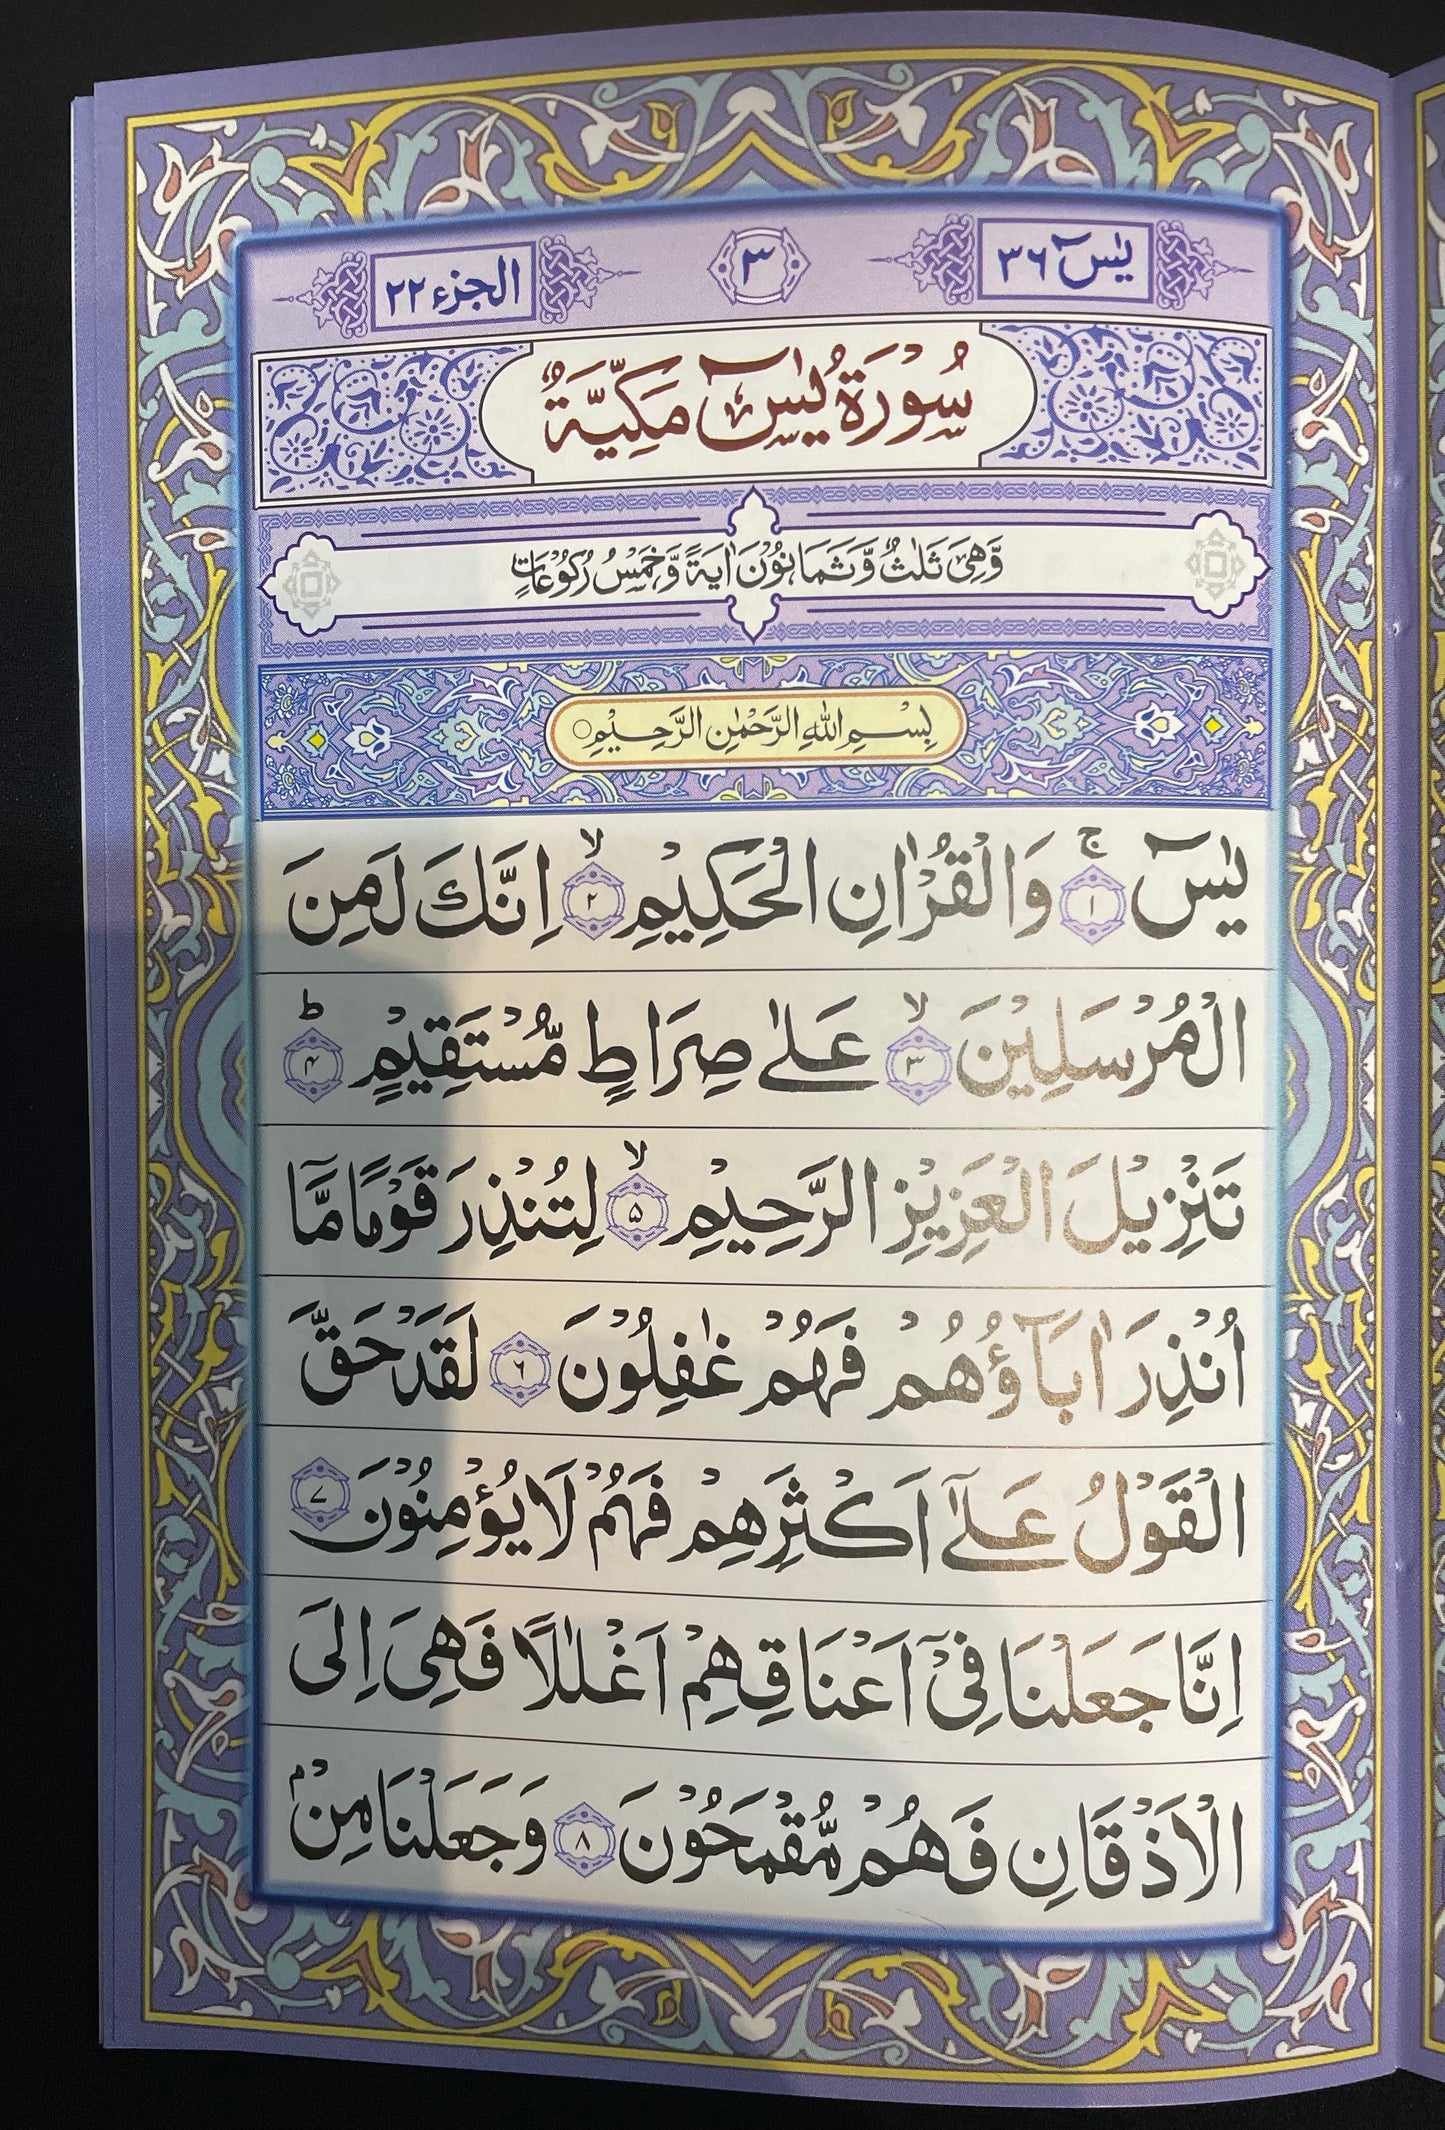 يٰسٓ ٣٦
٣
الجزء ٢٢
سُوْرَةُ يٰسٓ مَكِّيَّةٌ
وَّهِيَ ثَلٰثٌ وَّثَمَانُوْنَ اٰيَةً وَّخَمْسُ رُكُوْعَاتٍ
بِسْمِ اللّٰهِ الرَّحْمٰنِ الرَّحِيْمِ○
يٰسٓ ۚ﴿١﴾ وَالْقُرْاٰنِ الْحَكِيْمِ ۙ﴿٢﴾ اِنَّكَ لَمِنَ
الْمُرْسَلِيْنَ ۙ﴿٣﴾ عَلٰى صِرَاطٍ مُّسْتَقِيْمٍ ؕ﴿۴﴾
تَنْزِيْلَ الْعَزِيْزِ الرَّحِيْمِ ۙ﴿۵﴾ لِتُنْذِرَ قَوْمًا مَّاۤ
اُنْذِرَ اٰبَآؤُهُمْ فَهُمْ غٰفِلُوْنَ ﴿۶﴾ لَقَدْ حَقَّ
الْقَوْلُ عَلٰٓى اَكْثَرِهِمْ فَهُمْ لَا يُؤْمِنُوْنَ ﴿۷﴾
اِنَّا جَعَلْنَا فِيْۤ اَعْنَاقِهِمْ اَغْلٰلًا فَهِيَ اِلَى
الْاَذْقَانِ فَهُمْ مُّقْمَحُوْنَ ﴿۸﴾ وَجَعَلْنَا مِنْۢ